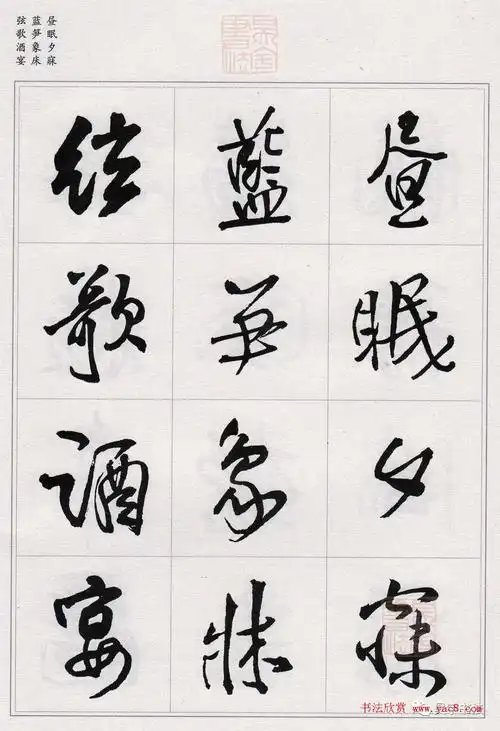 昼眠夕寐
蓝笋象床
弦歌酒宴
昼眠夕寐
藍笋象牀
絃歌酒宴
书法欣赏 www.yac8.com